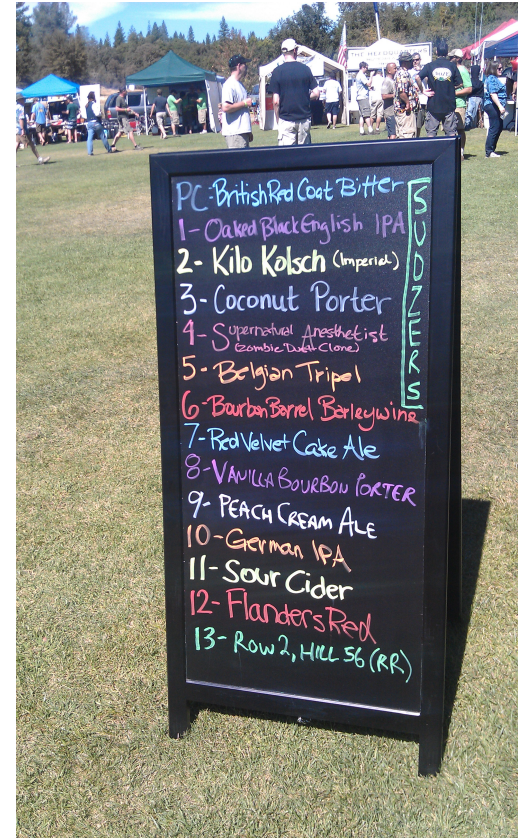 PC-British Red Coat Bitter
SUDZERS
1-Oaked Black English IPA
2-Kilo Kolsch (Imperial)
3-Coconut Porter
4-Supernatural Anesthetist
(Zombie Dust Clone)
5-Belgian Tripel
6-Bourbon Barrel Barleywine
7-Red Velvet Cake Ale
8-VANILLA BOURBON PORTER
9-PEACH CREAM ALE
10-German IPA
11-Sour Cider
12-Flanders Red
13-Row 2, HILL 56 (RR)